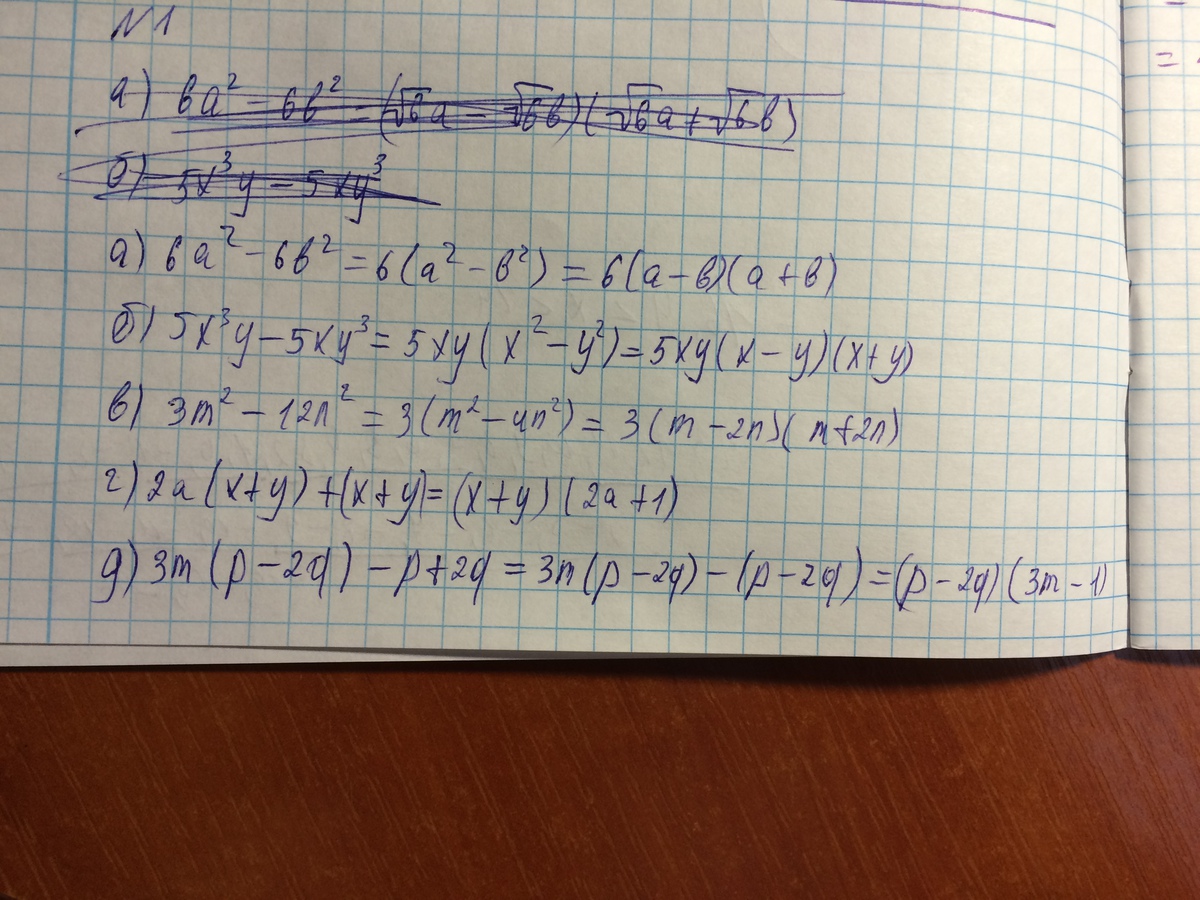 №1
а) 6a² - 6b² = (√6a - √6b)(√6a + √6b)
б) 5x³y - 5xy³
а) 6a² - 6b² = 6(a² - b²) = 6(a - b)(a + b)
б) 5x³y - 5xy³ = 5xy(x² - y²) = 5xy(x - y)(x + y)
в) 3m² - 12n² = 3(m² - 4n²) = 3(m - 2n)(m + 2n)
г) 2a(x + y) + (x + y) = (x + y)(2a + 1)
д) 3m(p - 2q) - p + 2q = 3m(p - 2q) - (p - 2q) = (p - 2q)(3m - 1)